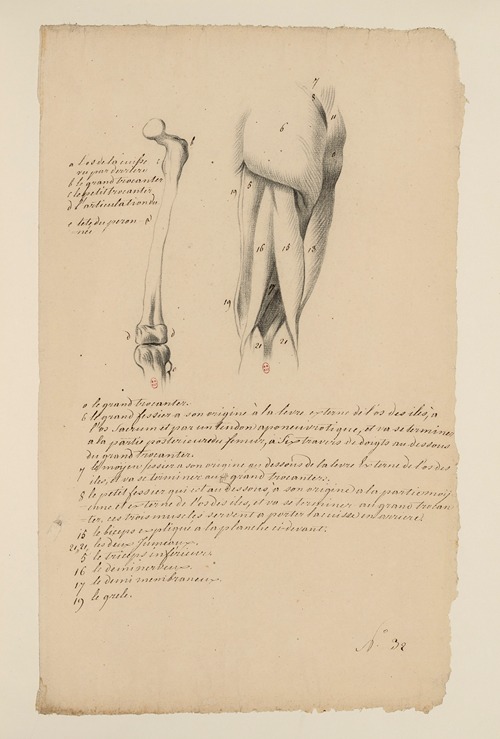 a l'os de la cuisse
vu par derriere
b le grand trocanter
c le petit trocanter
d l'articulation du
e tête du peron
née
b
d
d
e
7
8
6
11
9
19
5
16
15
13
17
19
21
21
o le grand trocanter.
6 le grand fessier a son origine à la levre externe de l'os des iles, à
l'os sacrum et par un tendon aponeuvrotique, et va se terminer
a la partie posterieure du femur, a six travers de doigts au dessous
du grand trocanter.
7 le moyen fessier a son origine au dessous de la levre externe de l'os des
iles, et va se terminer au grand trocanter.
8 le petit fessier qui est au dessous, a son origine a la partie moy
enne et externe de l'os des iles, et va se terminer au grand trocan
ter, ces trois muscles servent a porter la cuisse en arriere.
15 le biceps expliqué a la planche ci-devant.
21,21 les deux Jumeaux.
5 le triceps inférieur.
16 le demi nerveux.
17 le demi membraneux.
19 le grele.
N.° 32